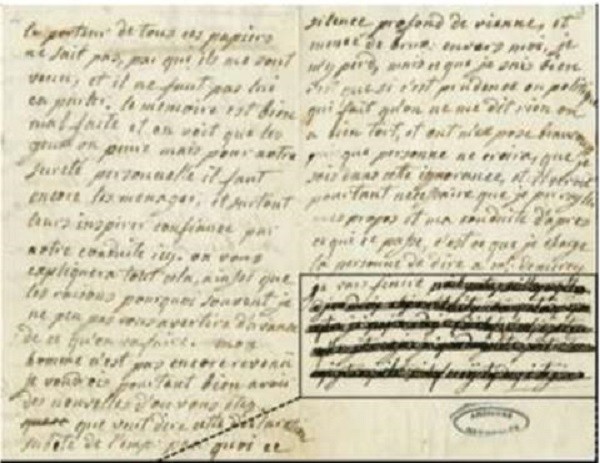 le porteur de tous ces papiers
ne sait pas, par qui ils me sont
venu, et il ne faut pas lui
en parler. le memoire est bien
mal faite et on voit que les
gens ont peur mais pour notre
sureté personnelle il faut
encore les menager, et surtout
leurs inspirer confiance par
notre conduite ici. on vous
expliquera tout cela, ainsi que
les raisons pourquoi souvent je
ne peu pas vous avertir d'avance
de ce qu'on va faire. mon
homme n'est pas encore revenu
je voudrois pourtant bien avoir
des nouvelles d'ou vous etes
que veut dire cette declaration
subite de l'emp: pourquoi ce
silence profond de vienne, et
meme de brux: envers moi, je
m'y perd, mais ce que je sais bien
c'est que si c'est prudence ou politique
qui fait qu'on ne me dit rien on
a bien tort, et on m'expose beaucoup
que personne ne croira, que je
sois dans cette ignorance, et il seroit
pourtant necessaire que je
mes propos et ma conduite d'apres
ce qui se passe, c'est ce que je charge
la personne de dire a mr: de mercy
je vais finire
ARCHIVES
NATIONALES